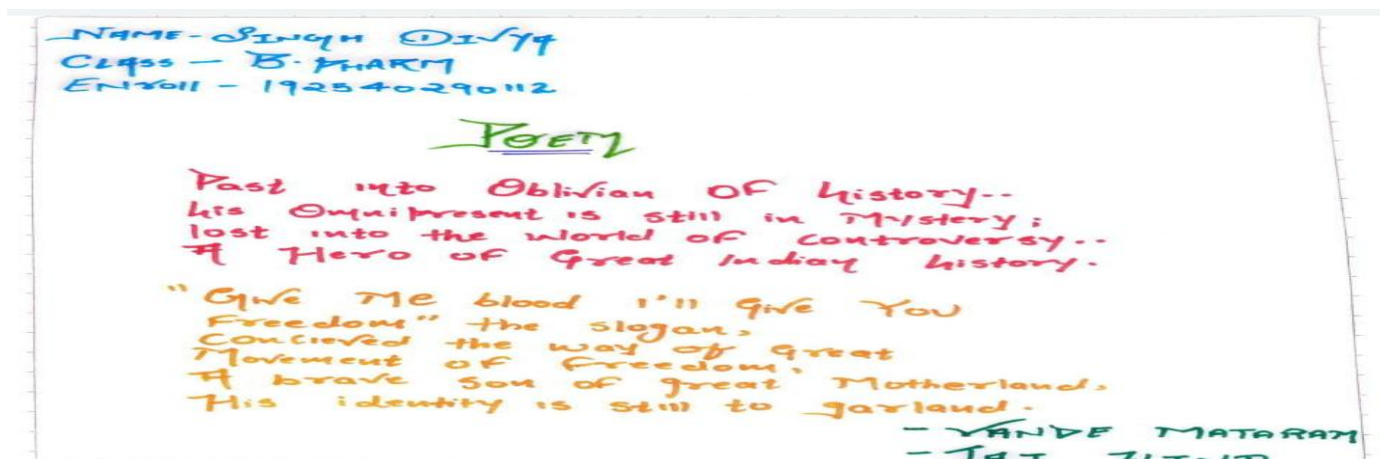 NAME - SINGH DIVYA
CLASS - B. PHARM
Enroll - 192540290112
POETY
Past into Oblivian OF history..
his Omnipresent is still in Mystery;
lost into the world OF controversy..
A Hero OF Great Indian history.
"Give Me blood I'll Give You
Freedom" the slogan,
Concieved the way of Great
Movement OF Freedom,
A brave son OF great Motherland,
His identity is still to garland.
- VANDE MATARAM
- JAI HIND